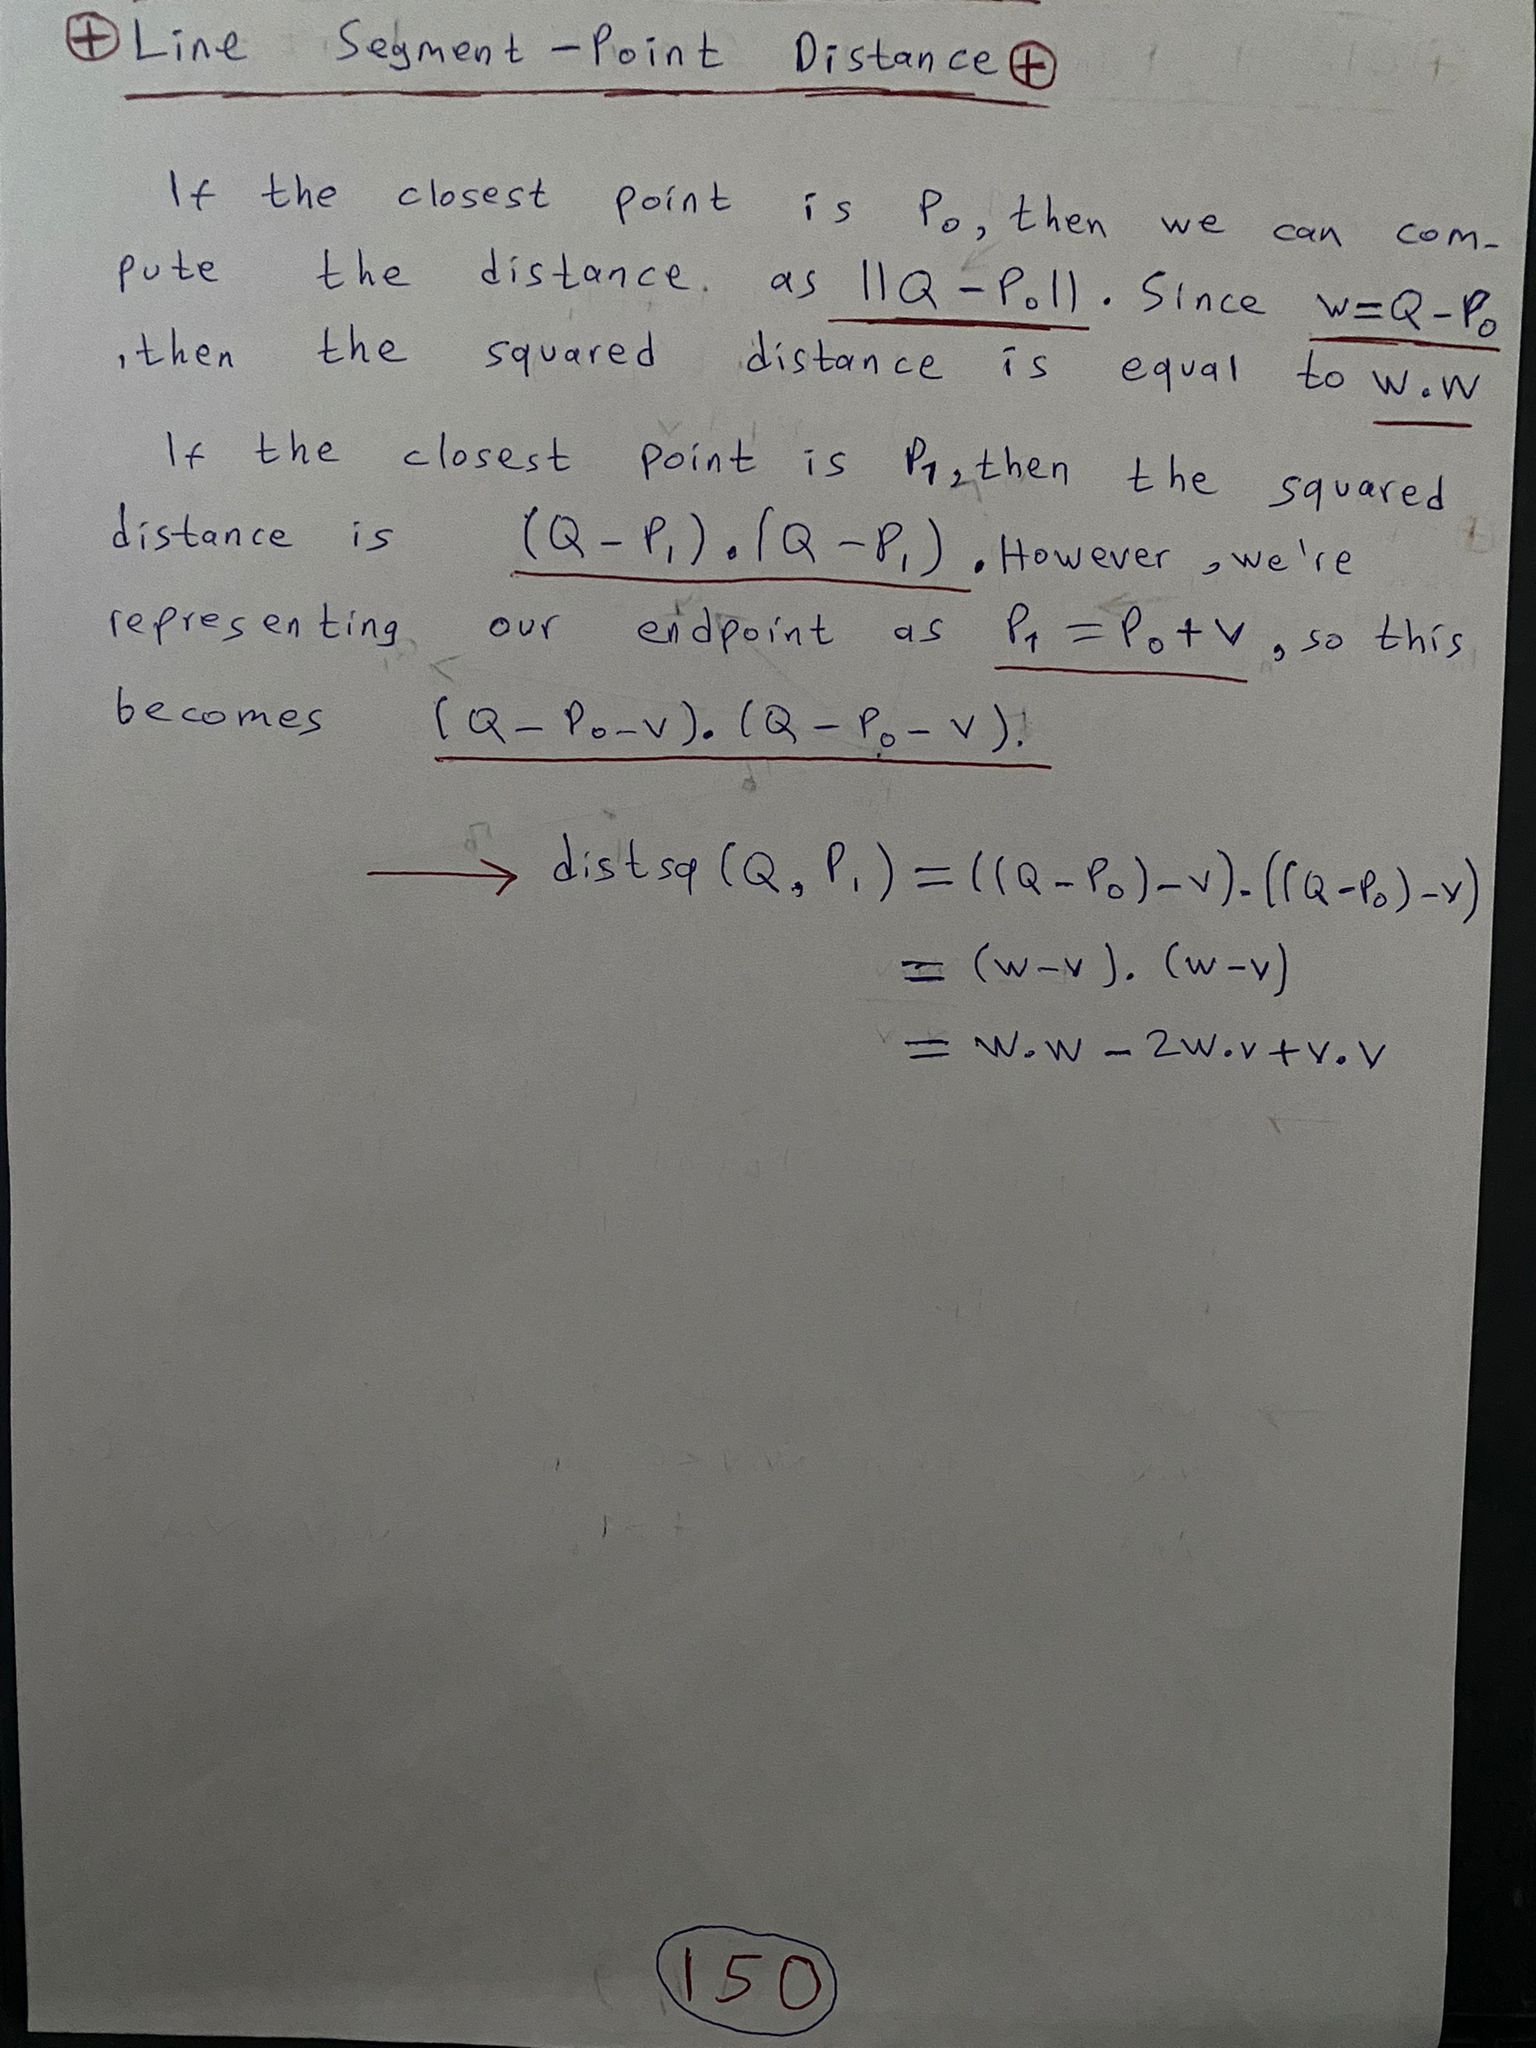 ⊕ Line Segment-Point Distance ⊕
If the closest point is P₀, then we can com-
pute the distance. as ||Q-P₀||. Since w=Q-P₀
,then the squared distance is equal to w.w
If the closest point is P₁, then the squared
distance is (Q-P₁).(Q-P₁). However, we're
representing our endpoint as P₁=P₀+v, so this
becomes (Q-P₀-v).(Q-P₀-v).
→ distsq(Q,P₁)=((Q-P₀)-v).((Q-P₀)-v)
=(w-v).(w-v)
= w.w-2w.v+v.v
150